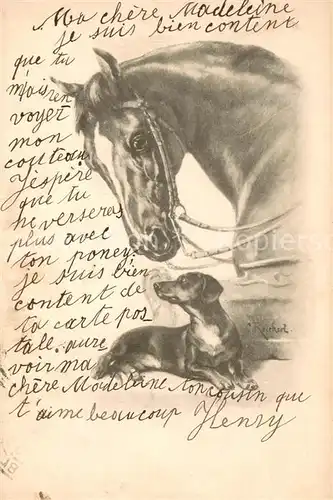 Ma chère Madeleine
je suis bien content
que tu
m'ais ren
voyer
mon
couteau
J'éspère
que tu
ne verseras
plus avec
ton poney.
je suis bien
content de
ta carte pos
tall. aure
voir ma
chère Madeleine ton cousin que
t'aime beaucoup Henry
Reichert